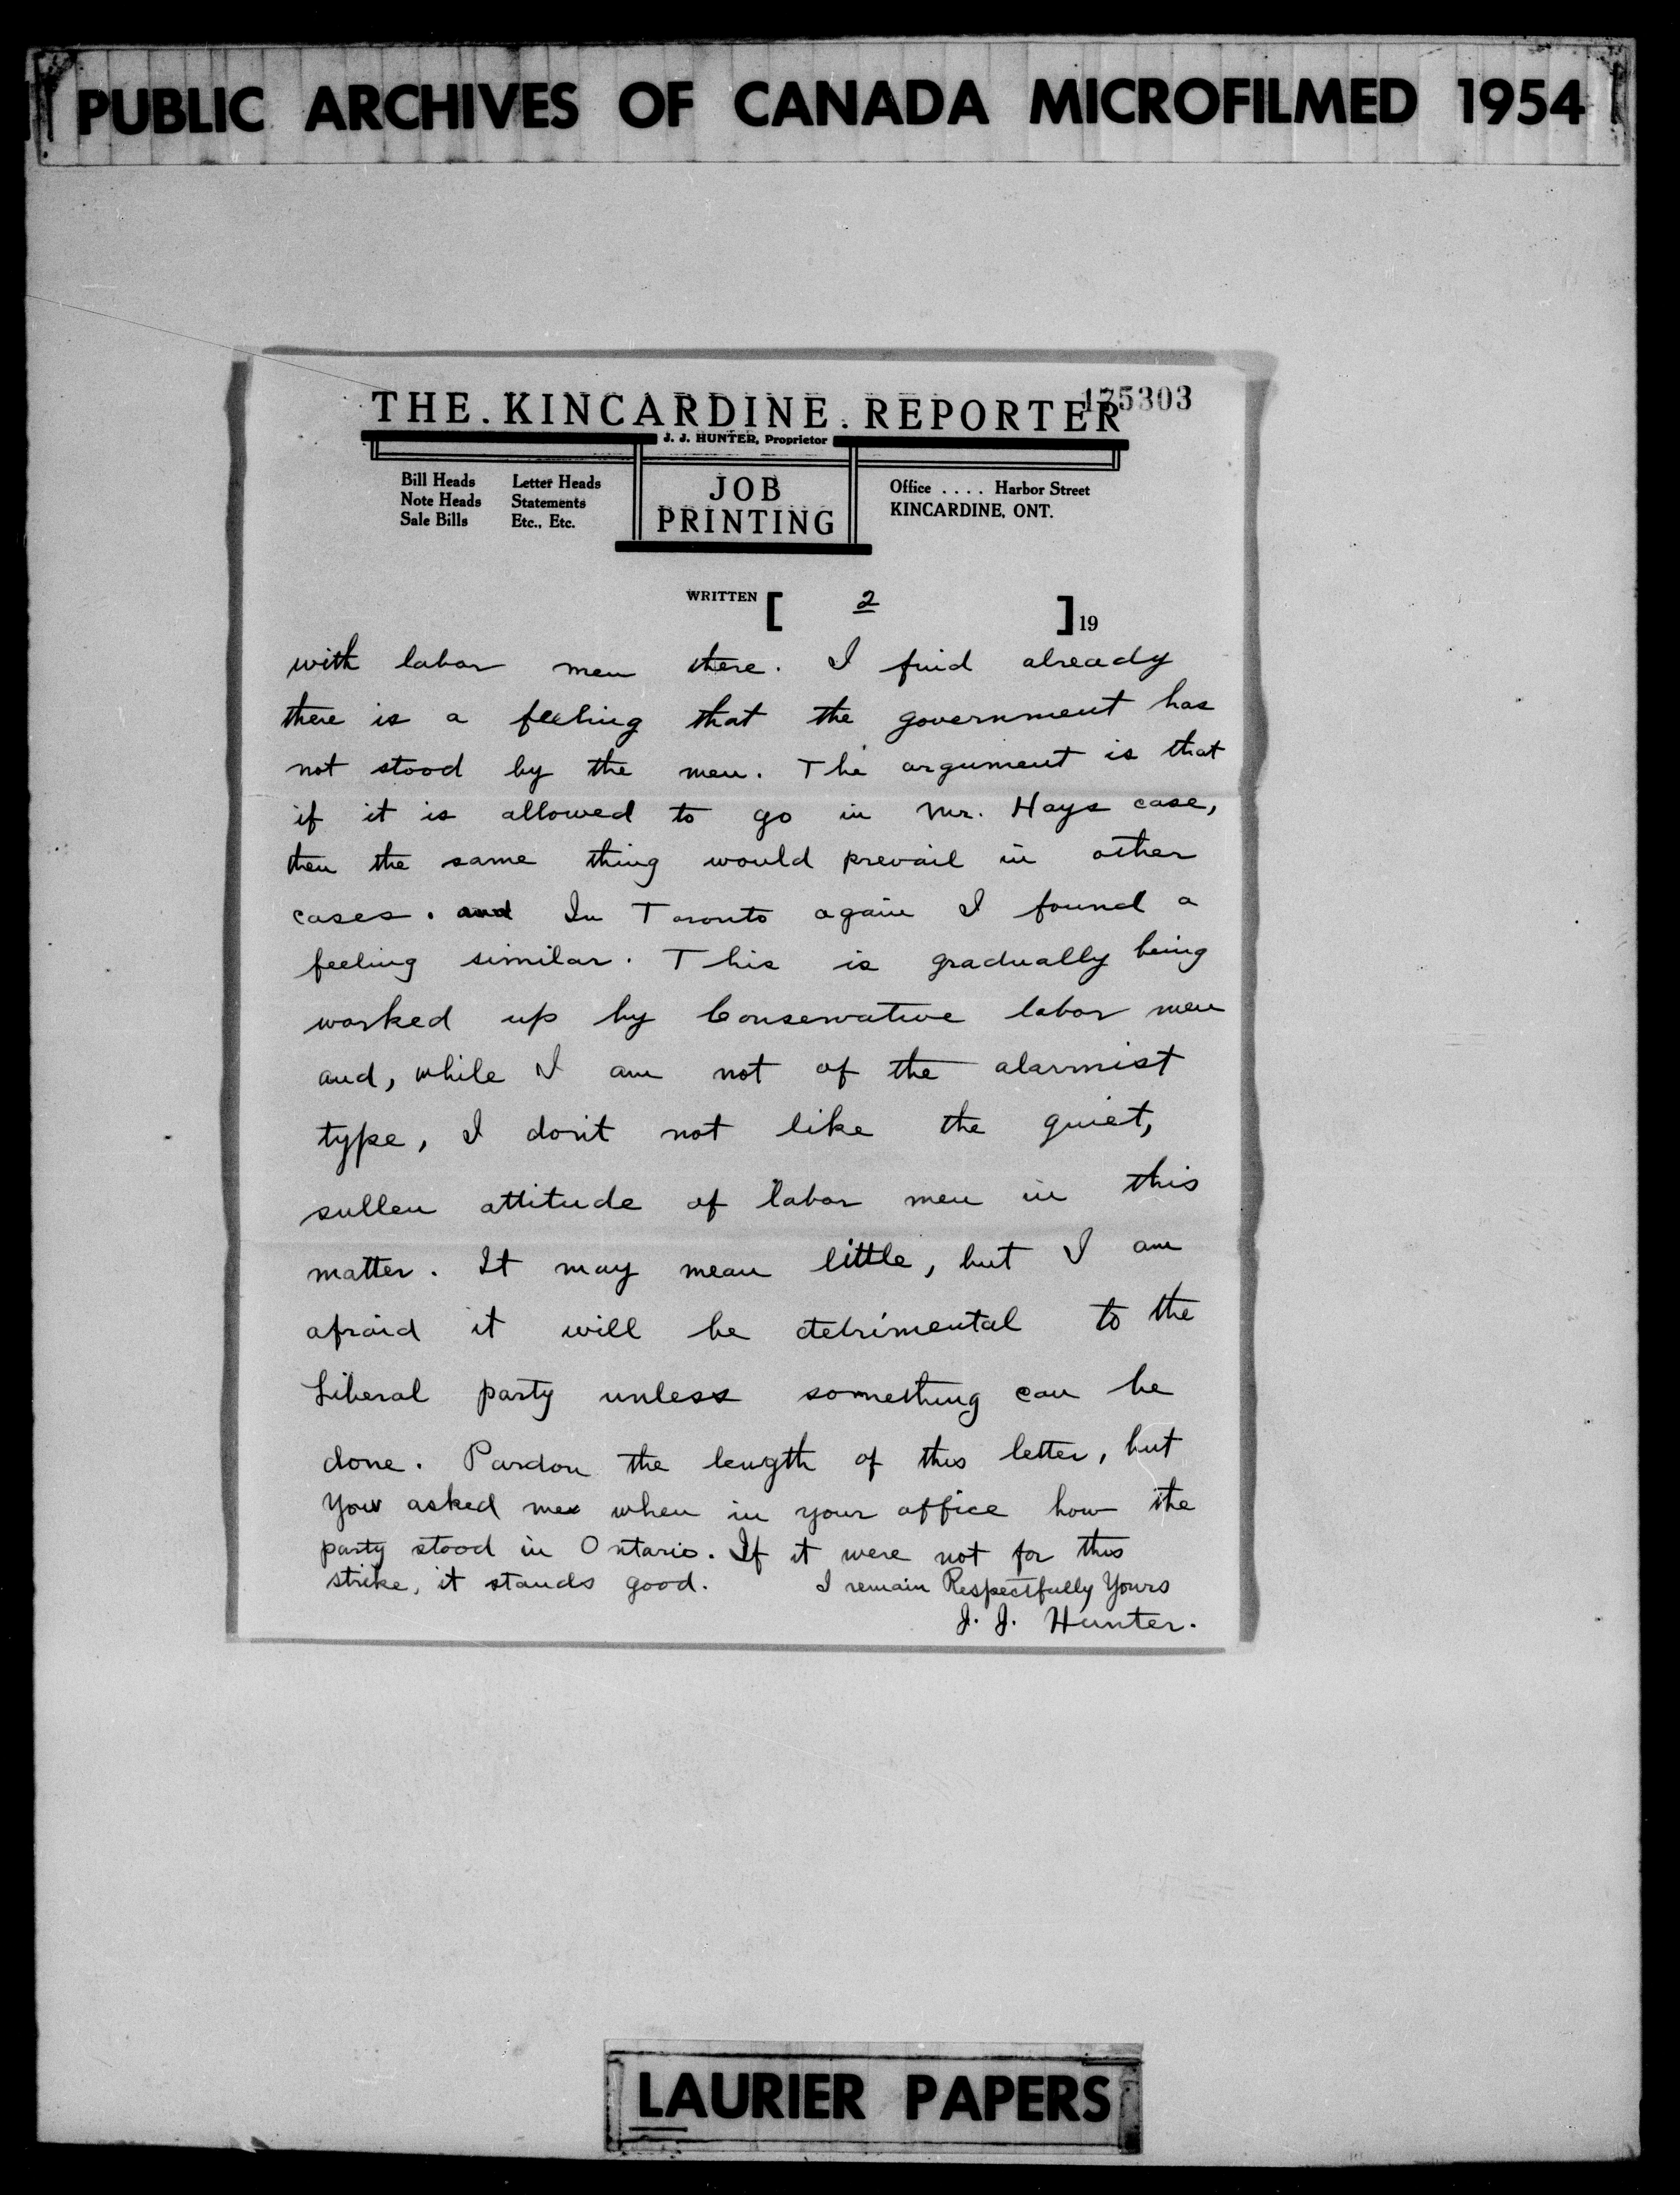 PUBLIC ARCHIVES OF CANADA MICROFILMED 1954
175303
THE. KINCARDINE. REPORTER
J. J. HUNTER, Proprietor
Bill Heads Letter Heads
Note Heads Statements
Sale Bills Etc., Etc.
JOB
PRINTING
Office .... Harbor Street
KINCARDINE, ONT.
WRITTEN [ 2 ] 19
with labor men there. I find already
there is a feeling that the government has
not stood by the men. The argument is that
if it is allowed to go in Mr. Hays case,
then the same thing would prevail in other
cases. and In Toronto again I found a
feeling similar. This is gradually being
worked up by Conservative labor men
and, while I am not of the alarmist
type, I don't not like the quiet,
sullen attitude of labor men in this
matter. It may mean little, but I am
afraid it will be detrimental to the
Liberal party unless something can be
done. Pardon the length of this letter, but
you asked me when in your office how the
party stood in Ontario. If it were not for this
strike, it stands good. I remain Respectfully Yours
J. J. Hunter.
LAURIER PAPERS